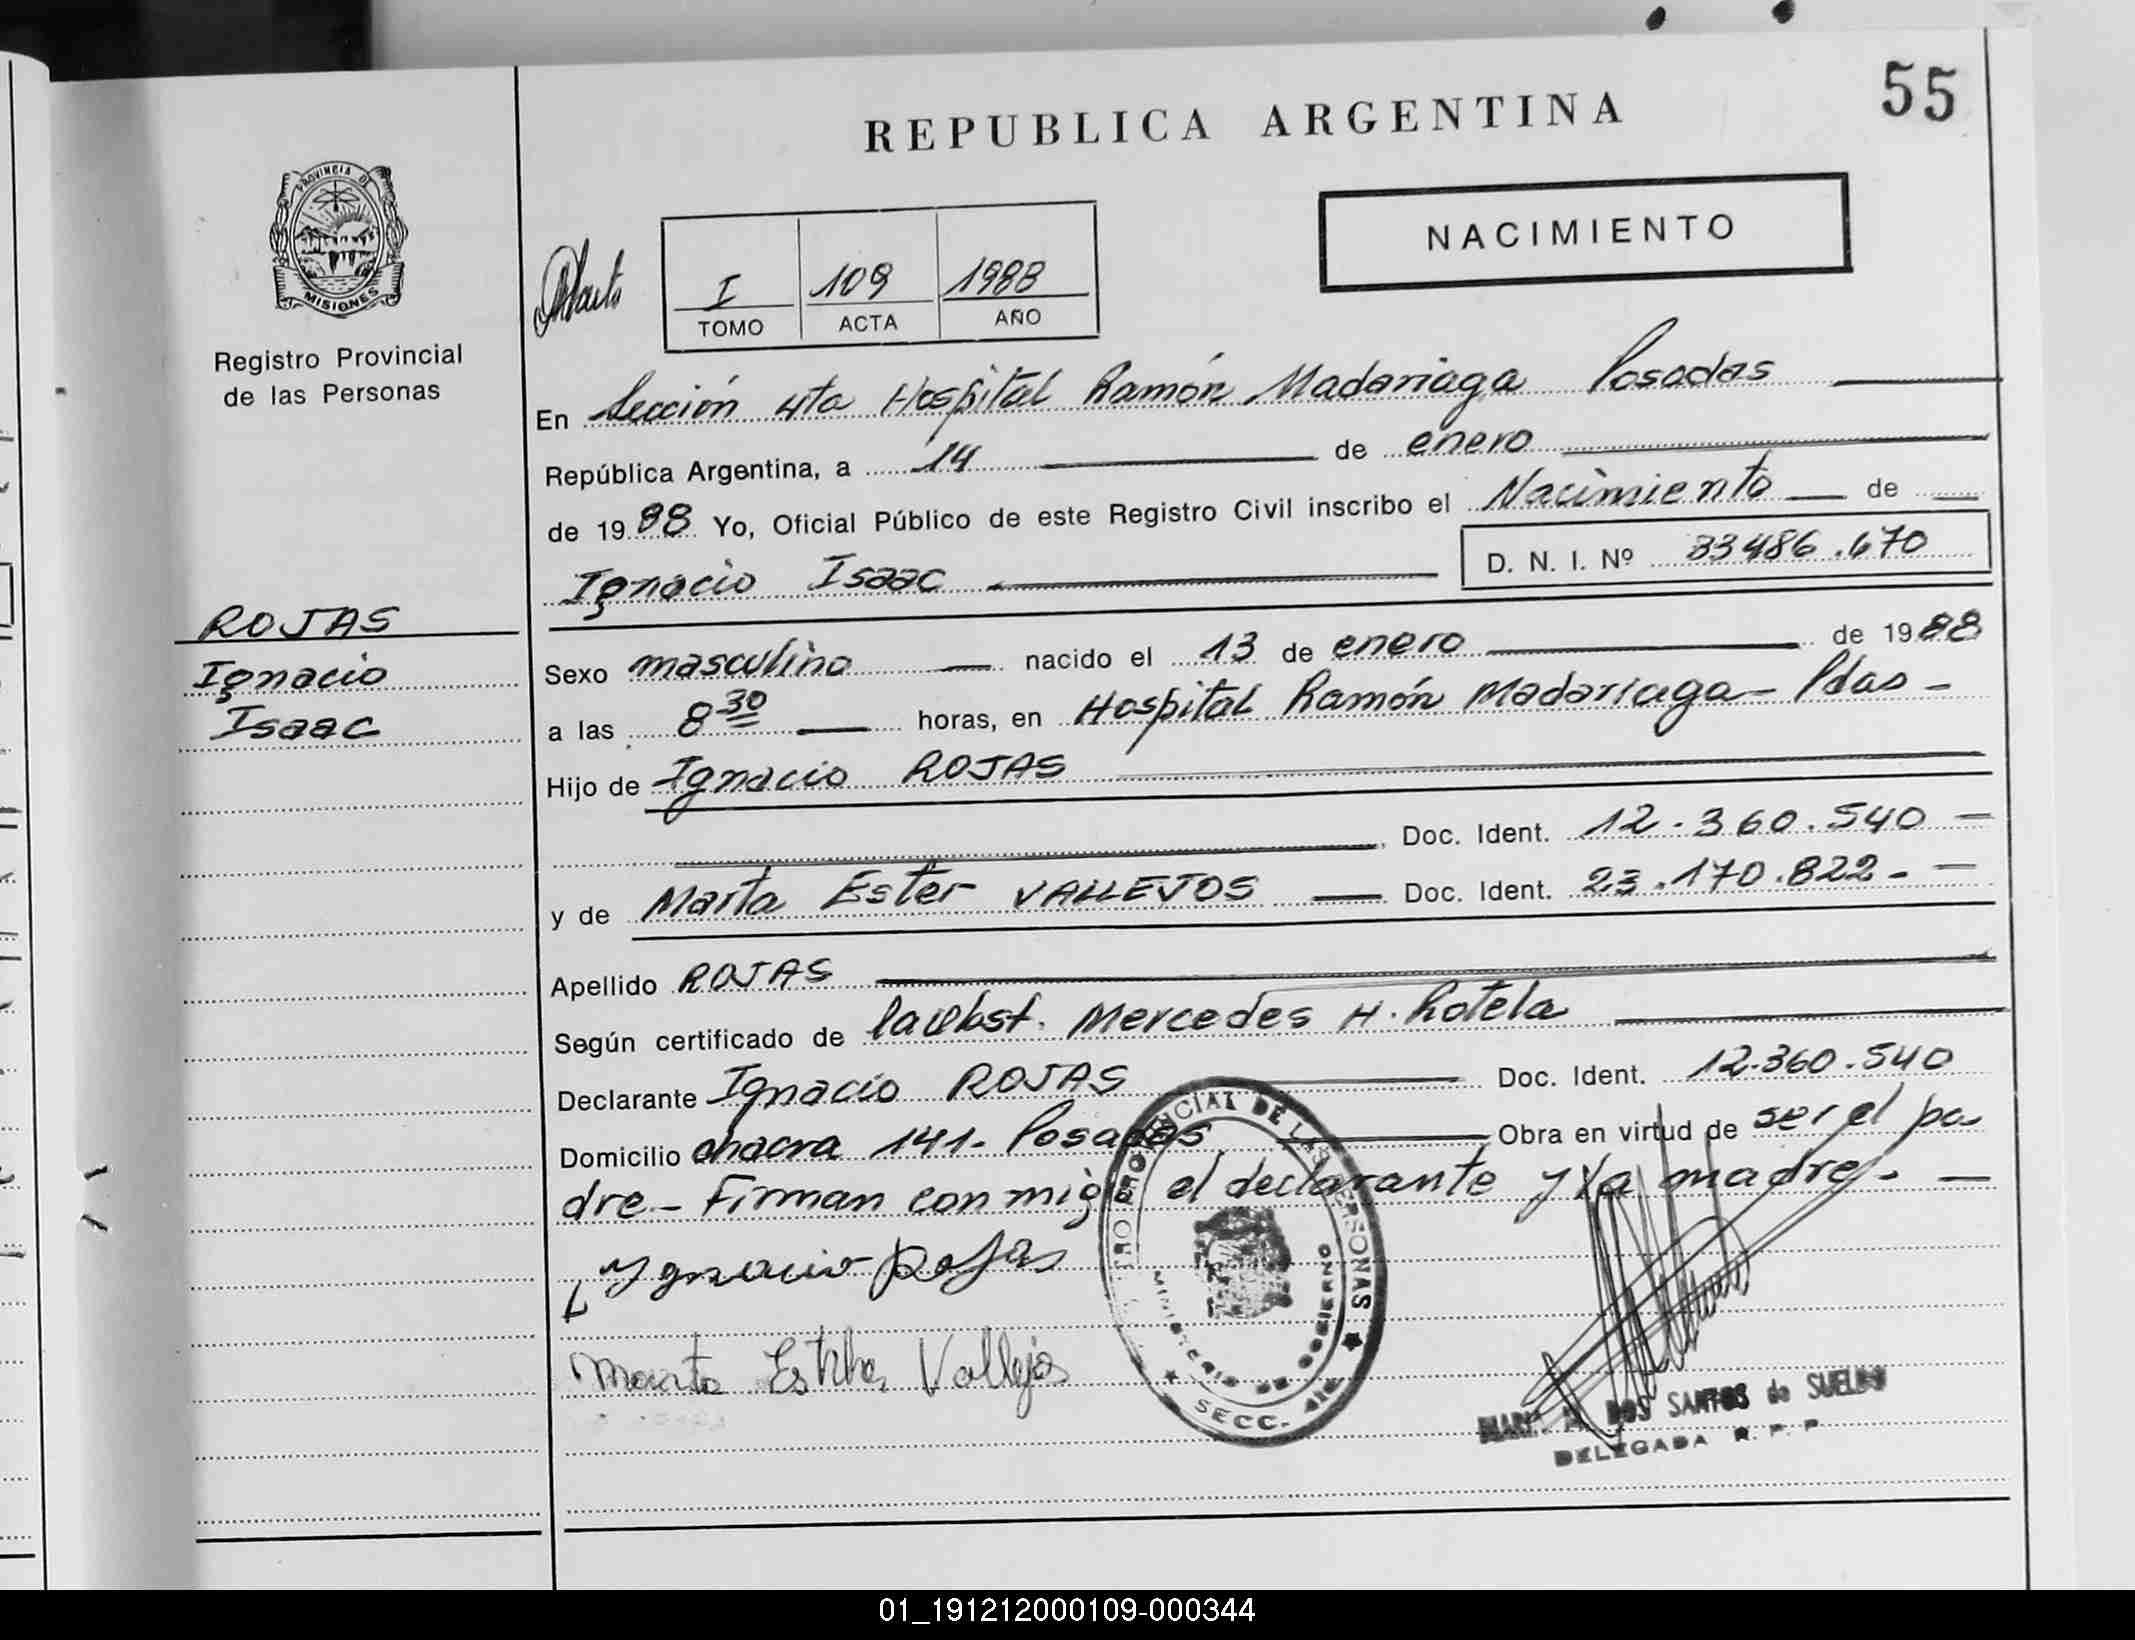 55
REPUBLICA ARGENTINA
NACIMIENTO
PROVINCIA DE
MISIONES
Registro Provincial
de las Personas
I 109 1988
TOMO ACTA AÑO
En Sección 4ta Hospital Ramón Madariaga Posadas
República Argentina, a 14 de enero
de 1988 Yo, Oficial Público de este Registro Civil inscribo el Nacimiento de
Ignacio Isaac D. N. I. Nº 33486.670
ROJAS
Ignacio
Isaac
Sexo masculino nacido el 13 de enero de 1988
a las 8 30 horas, en Hospital Ramón Madariaga - Pdas -
Hijo de Ignacio ROJAS
Doc. Ident. 12.360.540
y de Marta Ester VALLEJOS Doc. Ident. 23.170.822 -
Apellido ROJAS
Según certificado de la Obst. Mercedes H. Rotela
Declarante Ignacio ROJAS Doc. Ident. 12.360.540
Domicilio chacra 141- Posadas Obra en virtud de ser el pa
dre - Firman con migo el declarante y la madre. -
Ygnacio Rojas
Marta Vallejos
PROVINCIAL DE LAS PERSONAS
MINISTERIO DE GOBIERNO
SECC. 4ta
DOS SANTOS de SUELDO
DELEGADA R. P. P
01_191212000109-000344